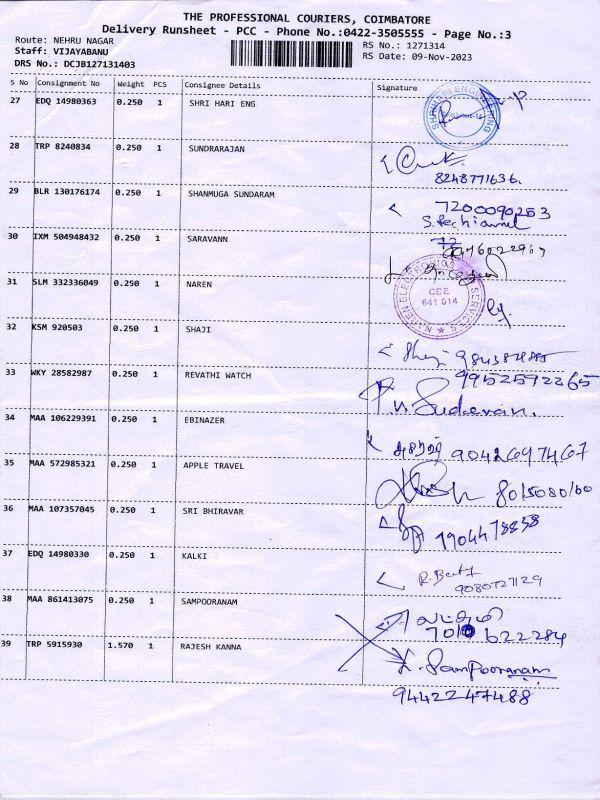 THE PROFESSIONAL COURIERS, COIMBATORE
Delivery Runsheet - PCC - Phone No.:0422-3505555 - Page No.:3
Route: NEHRU NAGAR
RS No.: 1271314
Staff: VIJAYABANU
RS Date: 09-Nov-2023
DRS No.: DCJB127131403
S No Consignment No Weight PCS Consignee Details Signature
27 EDQ 14980363 0.250 1 SHRI HARI ENG
28 TRP 8240834 0.250 1 SUNDRARAJAN
8248771636.
29 BLR 130176174 0.250 1 SHANMUGA SUNDARAM 7200090253
30 IXM 504948432 0.250 1 SARAVANN
31 SLM 332336049 0.250 1 NAREN
NAREN ELECTRONICS SERVICES
CBE
641 014
32 KSM 920503 0.250 1 SHAJI
33 WKY 28582987 0.250 1 REVATHI WATCH 9952592265
34 MAA 106229391 0.250 1 EBINAZER
9042697467
35 MAA 572985321 0.250 1 APPLE TRAVEL
8015080160
36 MAA 107357045 0.250 1 SRI BHIRAVAR
7904478838
37 EDQ 14980330 0.250 1 KALKI
9080727129
38 MAA 861413075 0.250 1 SAMPOORANAM
7010 622284
39 TRP 5915930 1.570 1 RAJESH KANNA
K. Sampooranam
9442247488